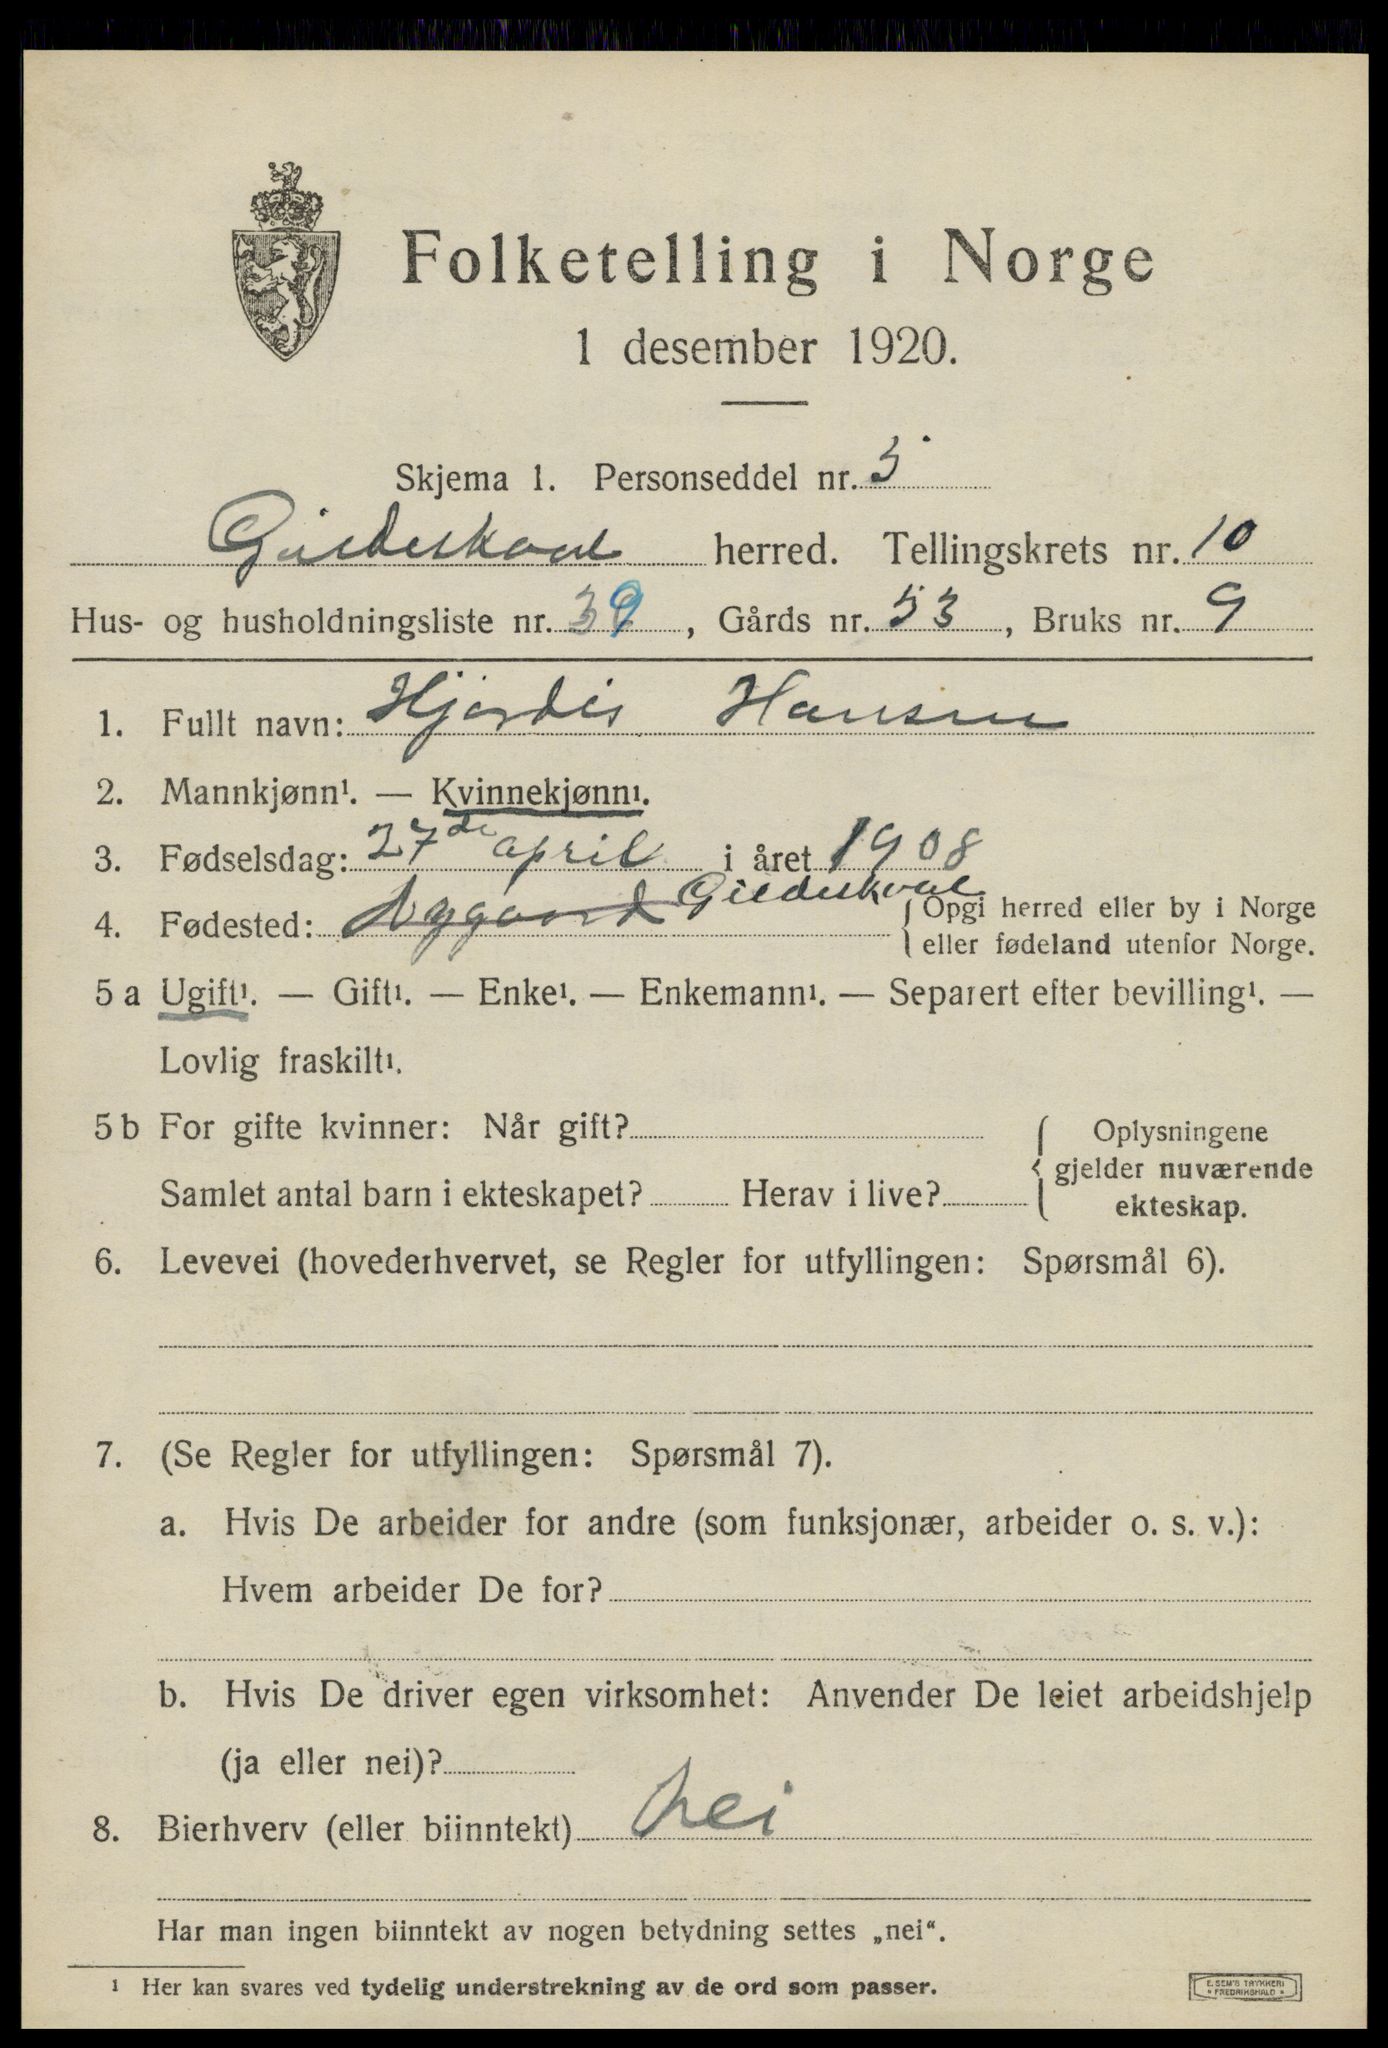 Folketelling i Norge
1 desember 1920.
Skjema 1. Personseddel nr. 5
Gildeskaal herred. Tellingskrets nr. 10
Hus- og husholdningsliste nr. 39, Gårds nr. 53, Bruks nr. 9
1. Fullt navn: Hjordis Hansen
2. Mannkjønn¹. — Kvinnekjønn¹.
3. Fødselsdag: 27de april i året 1908
4. Fødested: Nygaard Gildeskaal { Opgi herred eller by i Norge
eller fødeland utenfor Norge.
5 a Ugift¹. — Gift¹. — Enke¹. — Enkemann¹. — Separert efter bevilling¹. —
Lovlig fraskilt¹.
5 b For gifte kvinner: Når gift? { Oplysningene
gjelder nuværende
Samlet antal barn i ekteskapet? Herav i live? ekteskap.
6. Levevei (hovederhvervet, se Regler for utfyllingen: Spørsmål 6).
7. (Se Regler for utfyllingen: Spørsmål 7).
a. Hvis De arbeider for andre (som funksjonær, arbeider o. s. v.):
Hvem arbeider De for?
b. Hvis De driver egen virksomhet: Anvender De leiet arbeidshjelp
(ja eller nei)?
8. Bierhverv (eller biinntekt) nei
Har man ingen biinntekt av nogen betydning settes „nei“.
¹ Her kan svares ved tydelig understrekning av de ord som passer.
E. SEM'S TRYKKERI
* FREDRIKSHALD *